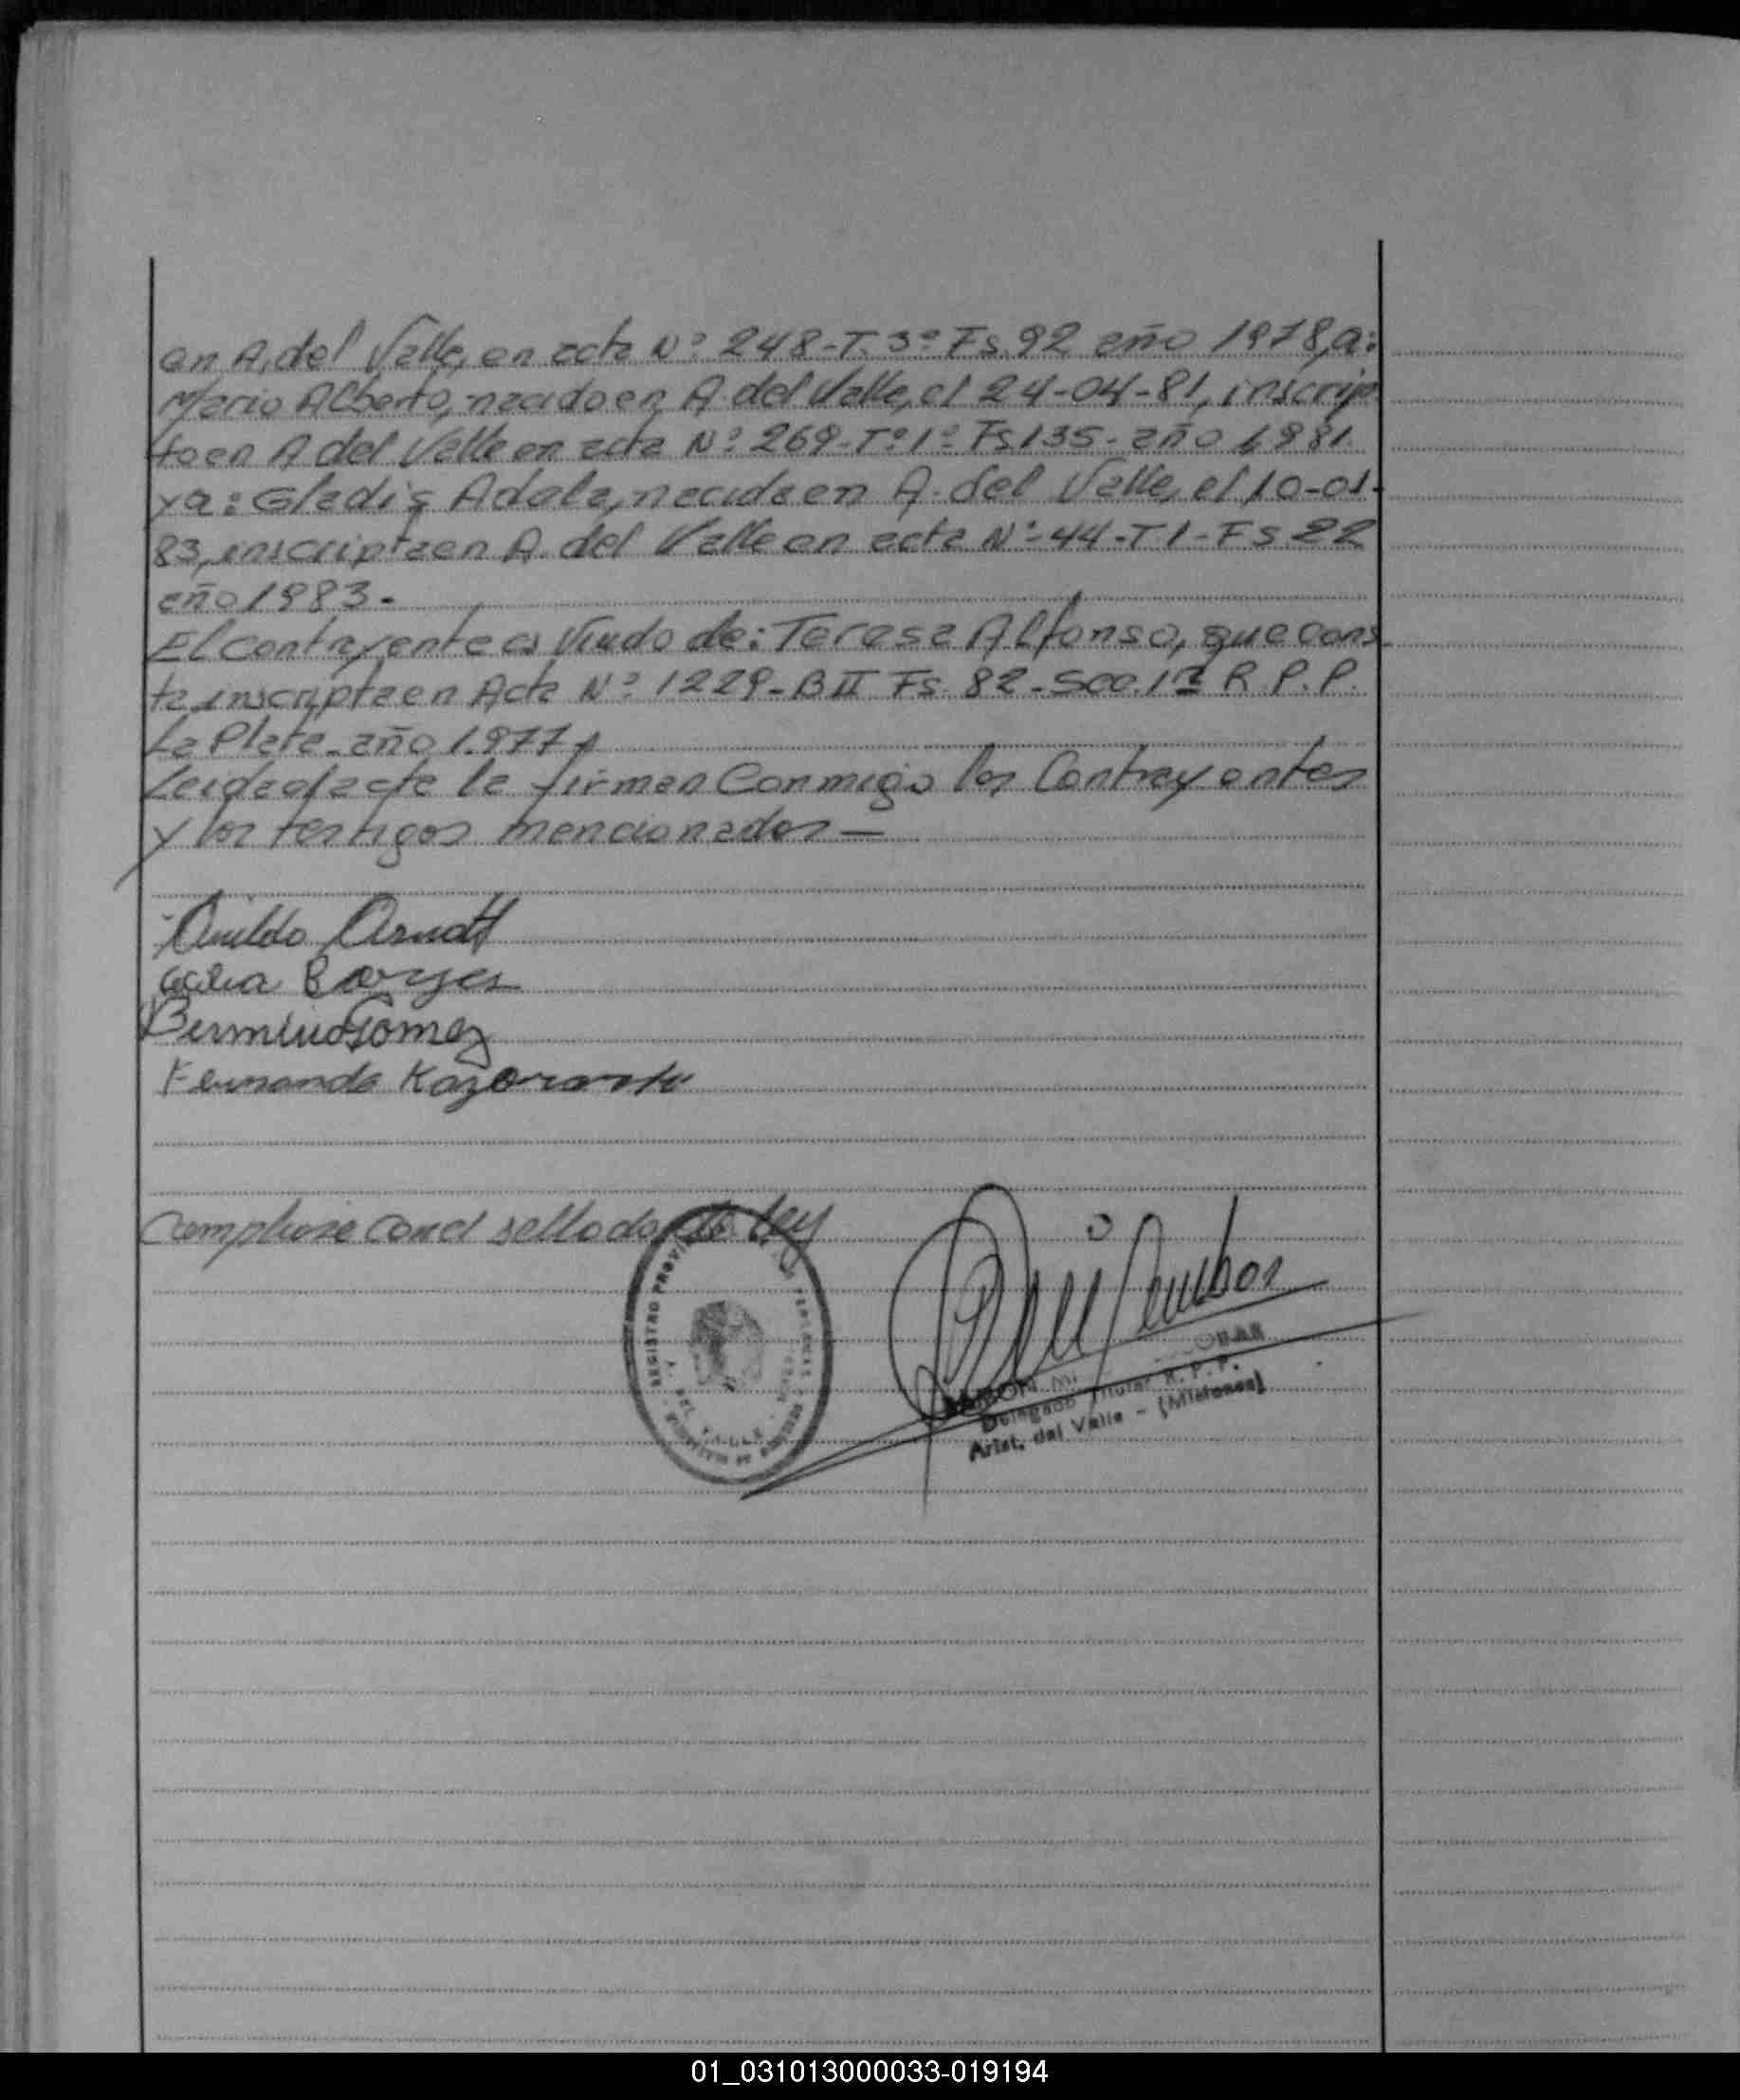 en A. del Valle, en acta Nº 248-T. 3º Fs. 92 año 1978, a:
Mario Alberto, nacido en A. del Valle, el 24-04-81, inscrip
to en A del Valle en acta Nº 269-Tº 1º Fs 135- año 1981.
y a: Gladis Adala, nacida en A. del Valle, el 10-01-
83, inscripta en A. del Valle en acta Nº 44-T 1-Fs 22
año 1983.-
El contrayente es Viudo de: Teresa Alfonso, que cons
ta inscripta en Acta Nº 1229-B II Fs. 82-Scc. 1ª R.P.P.
La Plata- año 1.977
Leida el acta la firman Conmigo los Contrayentes
y los testigos mencionados —
Arnildo Arndt
Cecilia Borges
Bermino Gomez
Fernando
Complúse con el sellado de Ley
REGISTRO
DEL VALLE
Delegado Titular R. P. P.
Arist. del Valle - (Misiones)
01_031013000033-019194